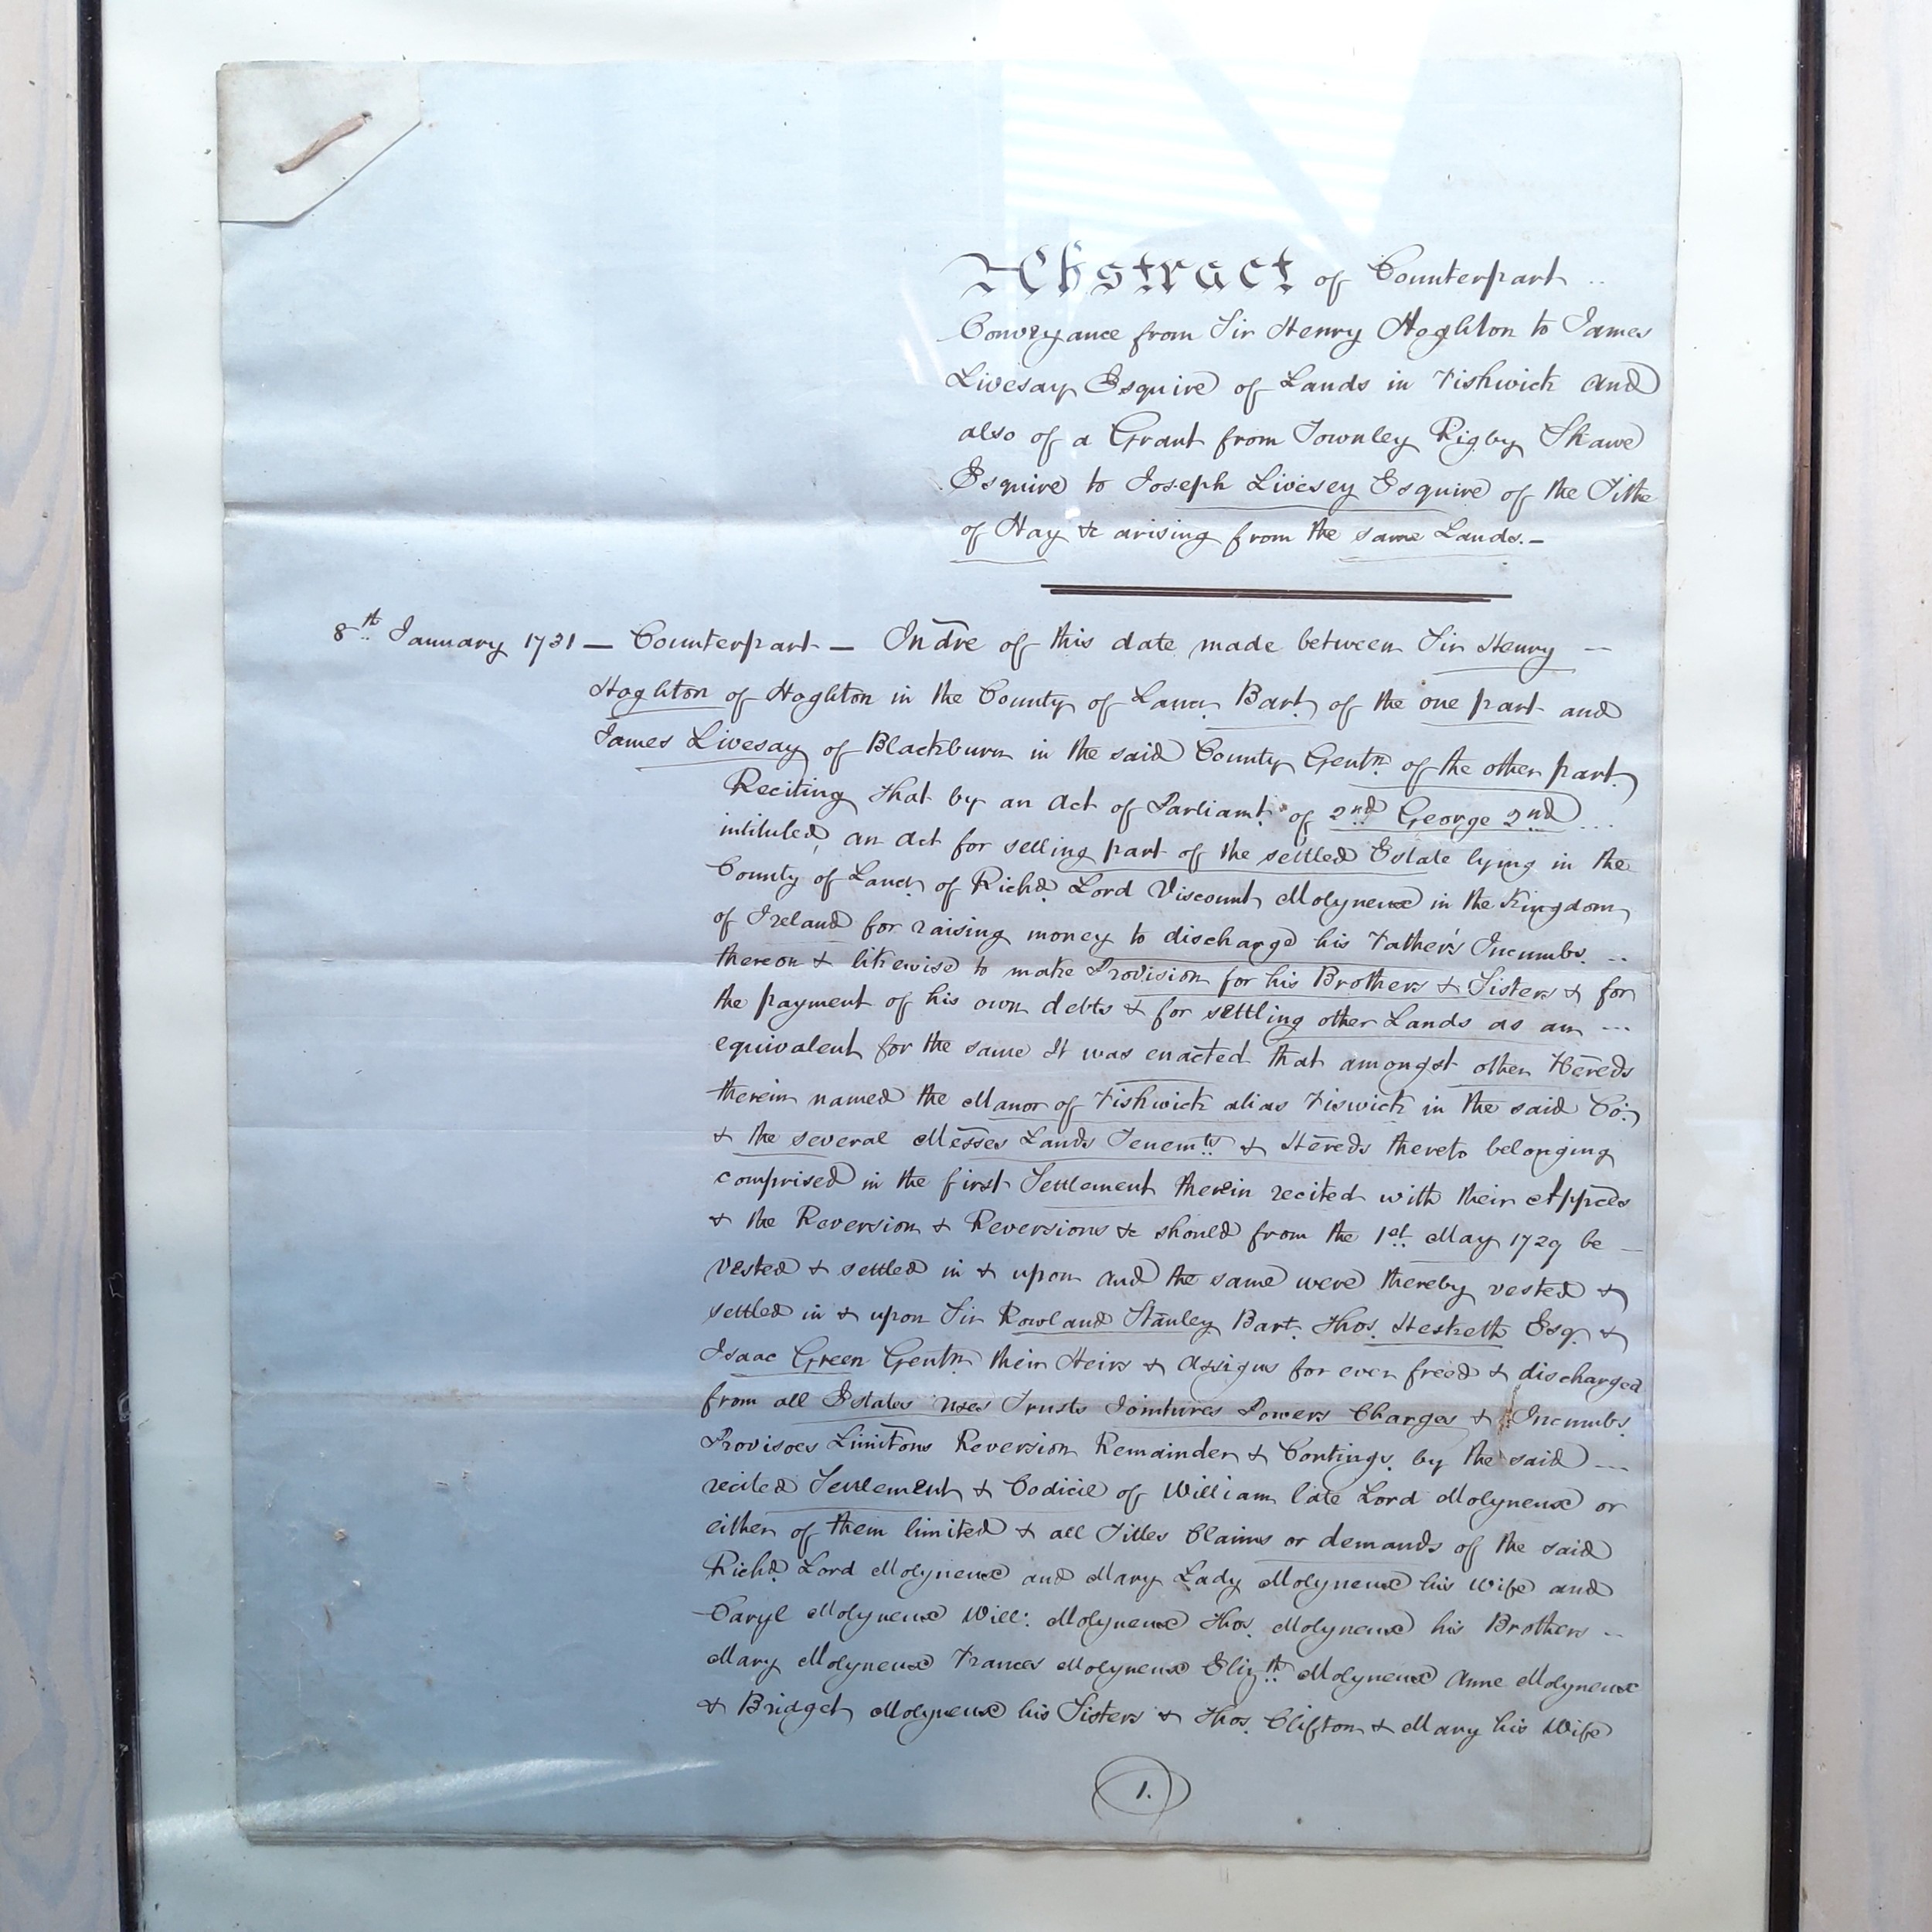 Abstract of Counterpart ..
Conveyance from Sir Henry Hoghton to James
Livesay Esquire of Lands in Fishwick and
also of a Grant from Townley Rigby Shawe
Esquire to Joseph Livesey Esquire of the Tithe
of Hay &c arising from the same Lands. -
8th January 1731 - Counterpart - Indre of this date made between Sir Henry -
Hoghton of Hoghton in the County of Lancr. Bart. of the one part and
James Livesay of Blackburn in the said County Gentn. of the other part.
Reciting that by an Act of Parliamt. of 2nd George 2nd ...
intituled, an Act for selling part of the settled Estate lying in the
County of Lancr. of Richd. Lord Viscount Molyneux in the Kingdom
of Ireland for raising money to discharge his Father's Incumbs. ..
thereon & likewise to make Provision for his Brothers & Sisters & for
the payment of his own debts & for settling other Lands as an ...
equivalent for the same It was enacted that amongst other Hereds
therein named the Manor of Fishwick alias Fiswick in the said Co.
& the several Messes Lands Tenemts. & Hereds thereto belonging
comprised in the first Settlement therein recited with their Appces
& the Reversion & Reversions &c should from the 1st. May 1729 be -
vested & settled in & upon and the same were thereby vested &
settled in & upon Sir Rowland Stanley Bart. Thos. Hesketh Esq. &
Isaac Green Gentn. their Heirs & Assigns for ever freed & discharged
from all Estates Uses Trusts Jointures Powers Charges & Incumbs.
Provisoes Limitons Reversion Remainder & Contings. by the said ...
recited Settlement & Codicil of William late Lord Molyneux or
either of them limited & all Titles Claims or demands of the said
Richd. Lord Molyneux and Mary Lady Molyneux his Wife and
Caryl Molyneux Will: Molyneux Thos. Molyneux his Brothers ..
Mary Molyneux Frances Molyneux Elizth. Molyneux Anne Molyneux
& Bridget Molyneux his Sisters & Thos. Clifton & Mary his Wife
1.